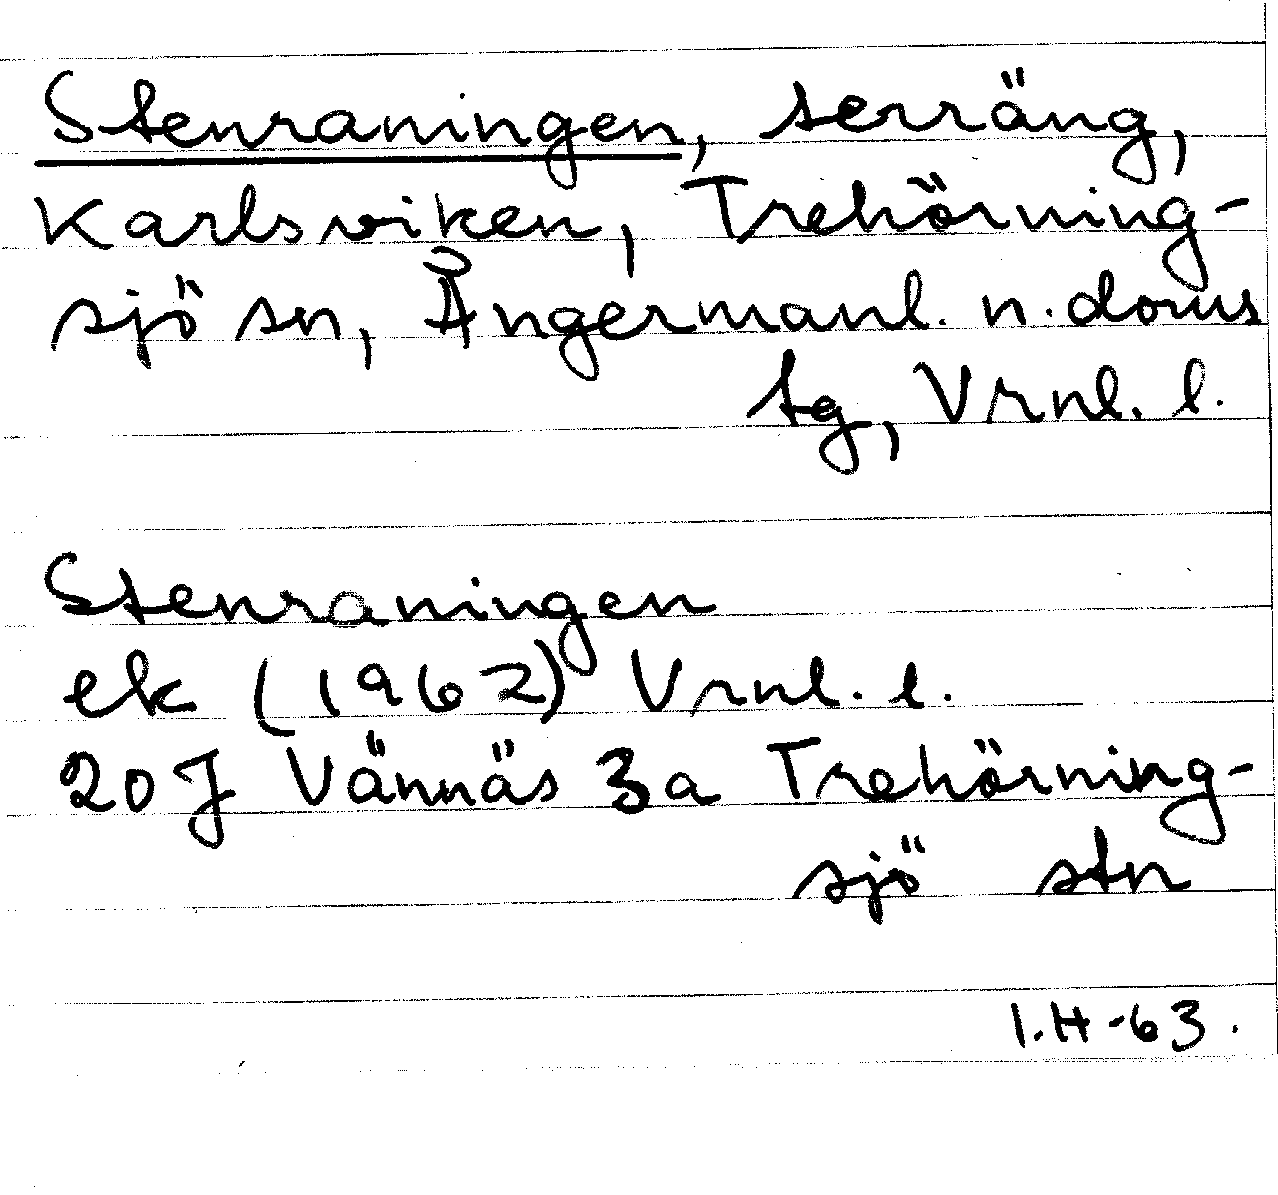 Stenraningen, terräng,
Karlsviken, Trehörning-
sjö sn, Ångermanl. n. doms
tg, Vrnl. l.
Stenraningen
ek (1962) Vrnl. l.
20 J Vännäs 3a Trehörning-
sjö stn
I.H-63.